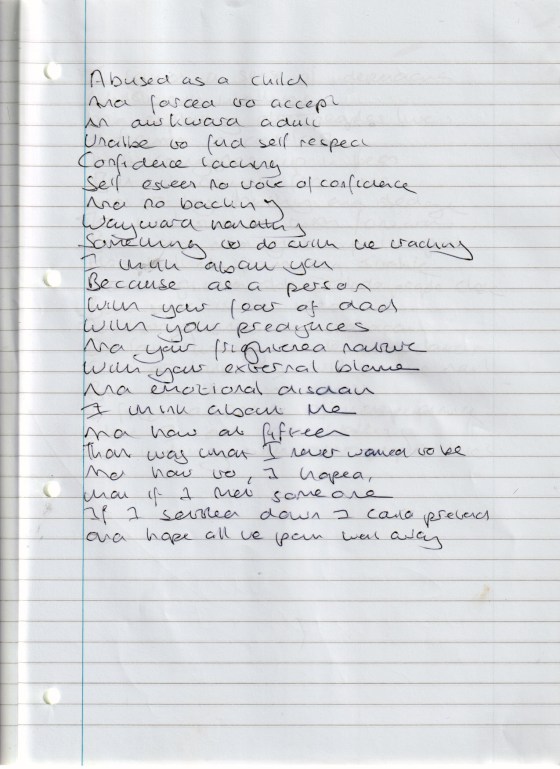 Abused as a child
And forced to accept
An awkward adult
Unable to find self respect
Confidence lacking
Self esteem no vote of confidence
And no backing
Wayward
Something to do with the tracking
I think about you
Because as a person
With your fear of dad
With your predjuces
And your frightened nature
With your external blame
And emotional disdain
I think about me
And how at fifteen
That was what I never wanted to be
And how to, I hoped,
that if I met someone
If I settled down I could pretend
and hope all the pain went away